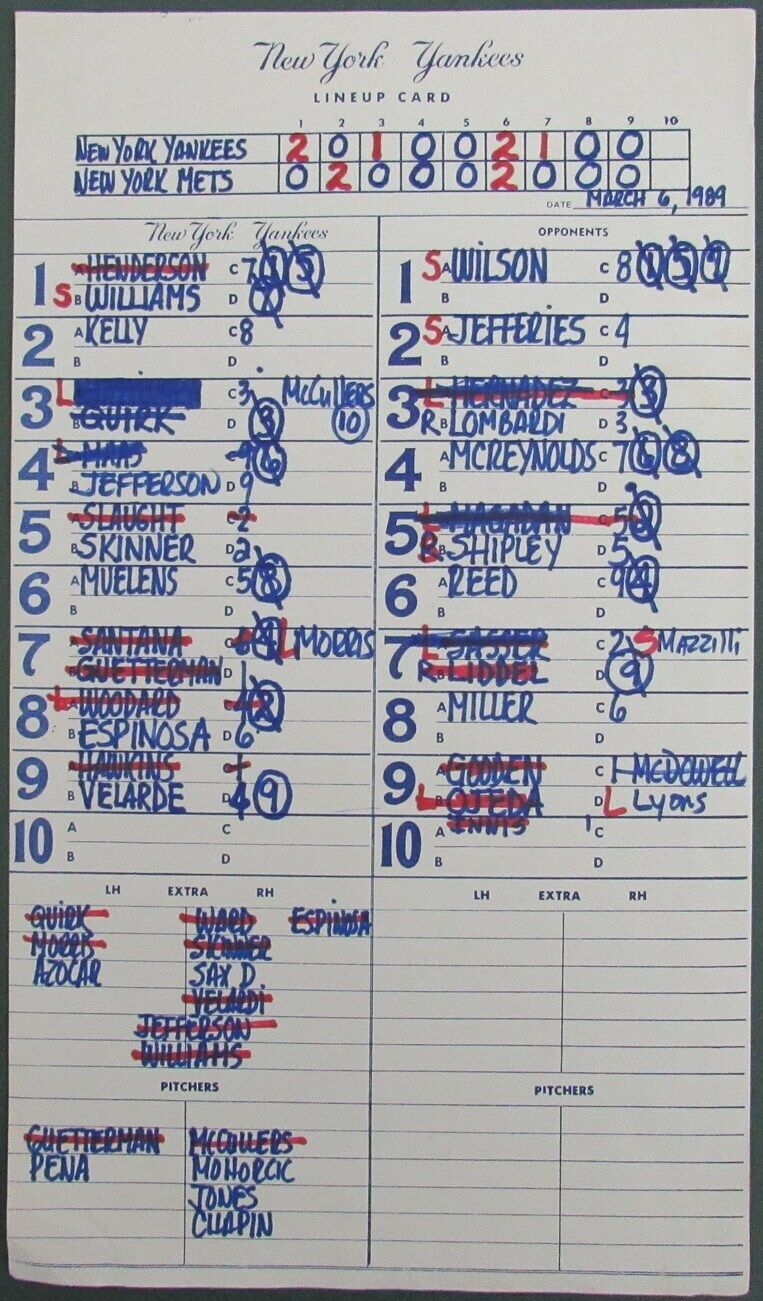 New York Yankees
LINEUP CARD
1 2 3 4 5 6 7 8 9 10
NEW YORK YANKEES 2 0 1 0 0 2 1 0 0
NEW YORK METS 0 2 0 0 0 2 0 0 0
DATE MARCH 6, 1989
New York Yankees
1 A HENDERSON C 7 1 5
S B WILLIAMS D 7
2 A KELLY C 8
B D
3 L C 3 McCULLERS
B QUIRK D 3 10
4 L HAAS C 9 6
B JEFFERSON D 9
5 A SLAUGHT C 2
B SKINNER D 2
6 A MUELENS C 5 8
B D
7 A SANTANA C 6 4 L MORRIS
B GUETTERMAN D 1
8 L A WOODARD C 4 2
B ESPINOSA D 6
9 A HAWKINS C 1
B VELARDE D 4 9
10 A C
B D
OPPONENTS
1 S A WILSON C 8 1 5 9
B D
2 S A JEFFERIES C 4
B D
3 L HERNADEZ C 3 3
R B LOMBARDI D 3
4 A MCREYNOLDS C 7 6 8
B D
5 L MAGADAN C 5 2
R B SHIPLEY D 5
6 A REED C 9 4
B D
7 L SASSER C 2 S MAZZILLI
R B LIDDEL D 9
8 A MILLER C 6
B D
9 A GOODEN C 1 MCDOWELL
L B OJEDA D L Lyons
10 A INNIS 1 C
B D
LH EXTRA RH
QUIRK WARD ESPINOSA
MORRIS SKINNER
AZOCAR SAX D
VELARDI
JEFFERSON
WILLIAMS
PITCHERS
GUETTERMAN MCCULLERS
PENA MOHORCIC
JONES
CHAPIN
LH EXTRA RH
PITCHERS